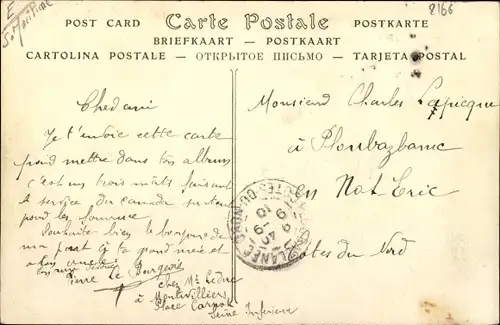 E
S. Maritime
8166
POST CARD Carte Postale POSTKARTE
BRIEFKAART — POSTKAART
CARTOLINA POSTALE — ОТКРЫТОЕ ПИСЬМО — TARJETA POSTAL
Cher ami
Je t'envoie cette carte
pour mettre dans ton album
c'est un trois mâts faisant
le service du canada surtout
pour les
Souhaite bien le bonjour de
ma part à ta grand mère et
Pierre Le Bourgeois
chez Mr Leduc
à Montivilliers
Place Carnot
Seine Inférieure
Monsieur Charles Lapicque
à Ploubazlanec
en
Côtes du Nord
COTES-DU-NORD